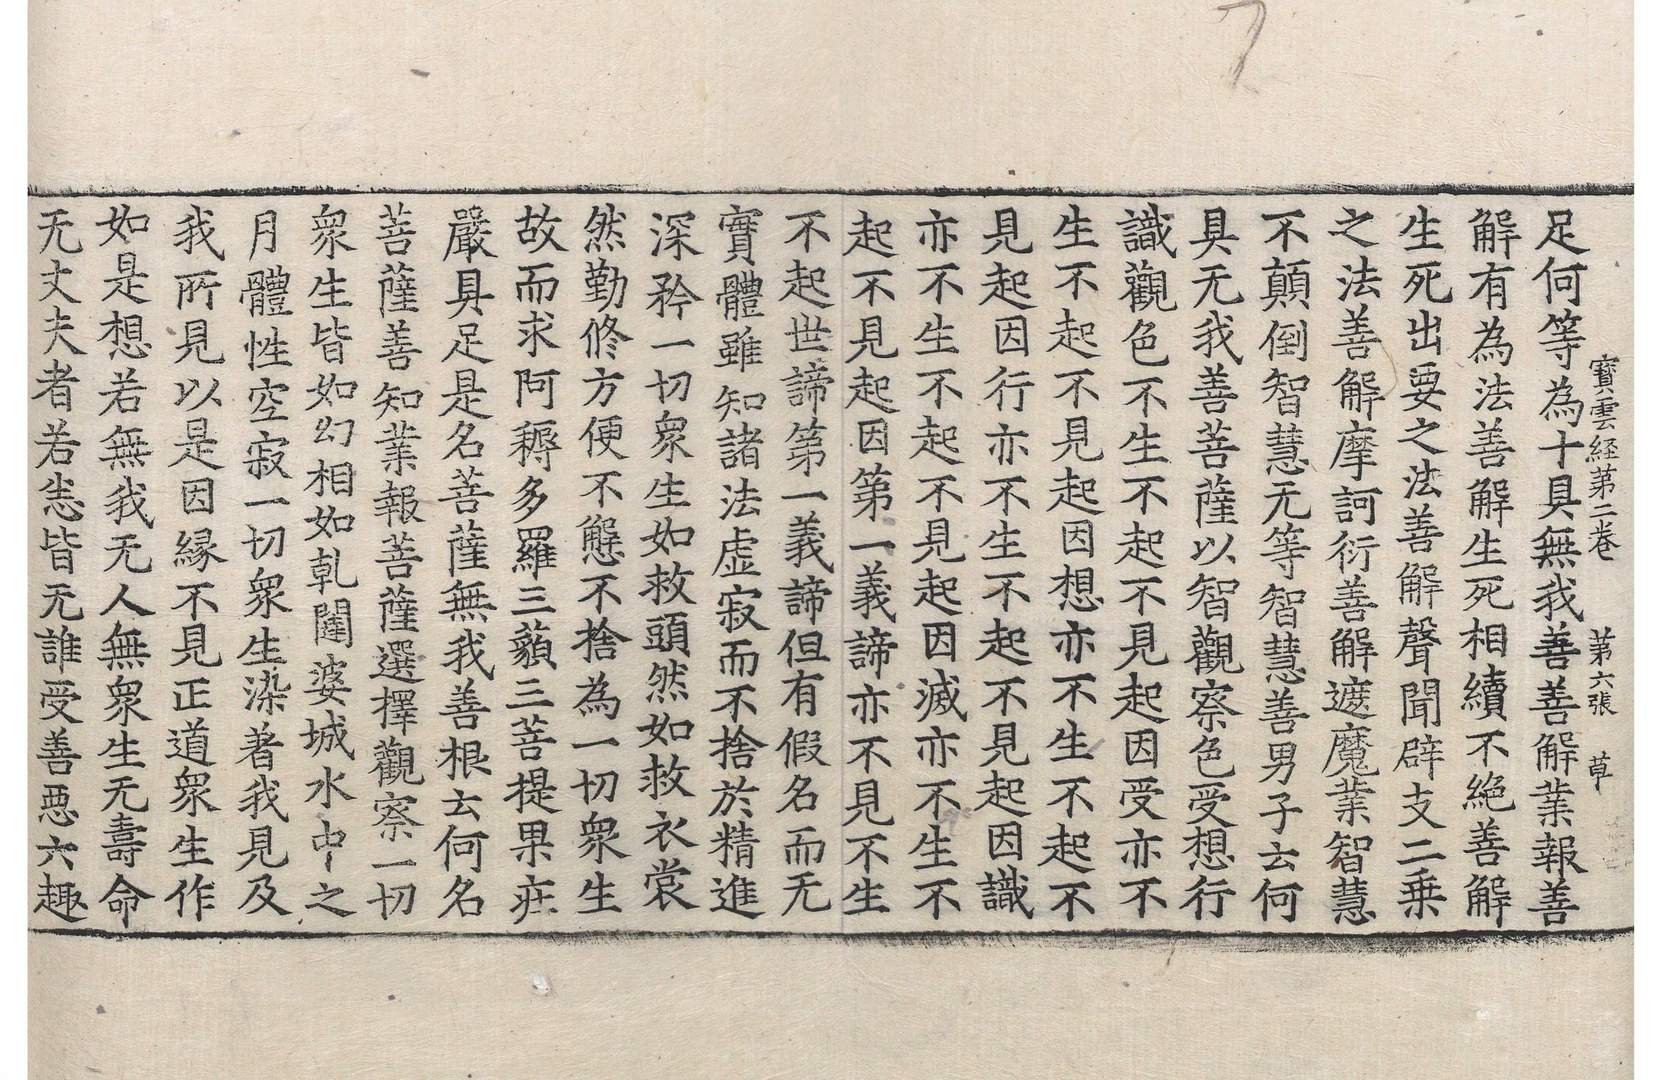 寶雲経第二卷 第六張 草
足何等為十具無我善善解業報善
解有為法善解生死相續不絶善解
生死出要之法善解聲聞辟支二乗
之法善解摩訶衍善解遮魔業智慧
不顛倒智慧无等智慧善男子云何
具无我善菩薩以智觀察色受想行
識觀色不生不起不見起因受亦不
生不起不見起因想亦不生不起不
見起因行亦不生不起不見起因識
亦不生不起不見起因滅亦不生不
起不見起因第一義諦亦不見不生
不起世諦第一義諦但有假名而无
實體雖知諸法虚寂而不捨於精進
深矜一切衆生如救頭然如救衣裳
然勤修方便不懈不捨為一切衆生
故而求阿耨多羅三藐三菩提果疟
嚴具足是名菩薩無我善根云何名
菩薩善知業報菩薩選擇觀察一切
衆生皆如幻相如乹闥婆城水中之
月體性空寂一切衆生染著我見及
我所見以是因縁不見正道衆生作
如是想若無我无人無衆生无壽命
无丈夫者若恙皆无誰受善悪六趣